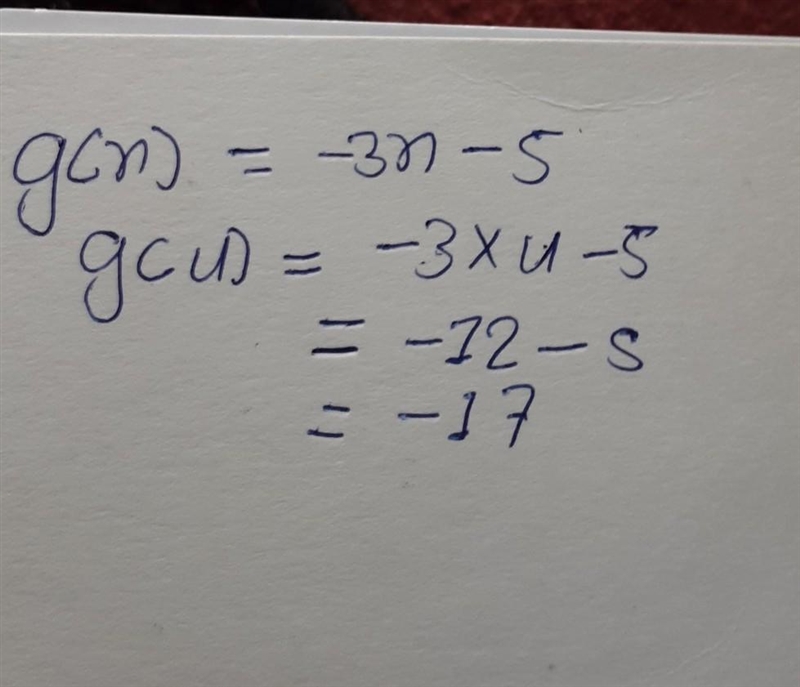 g(n) = -3n - 5
g(4) = -3×4 - 5
= -12 - 5
= -17